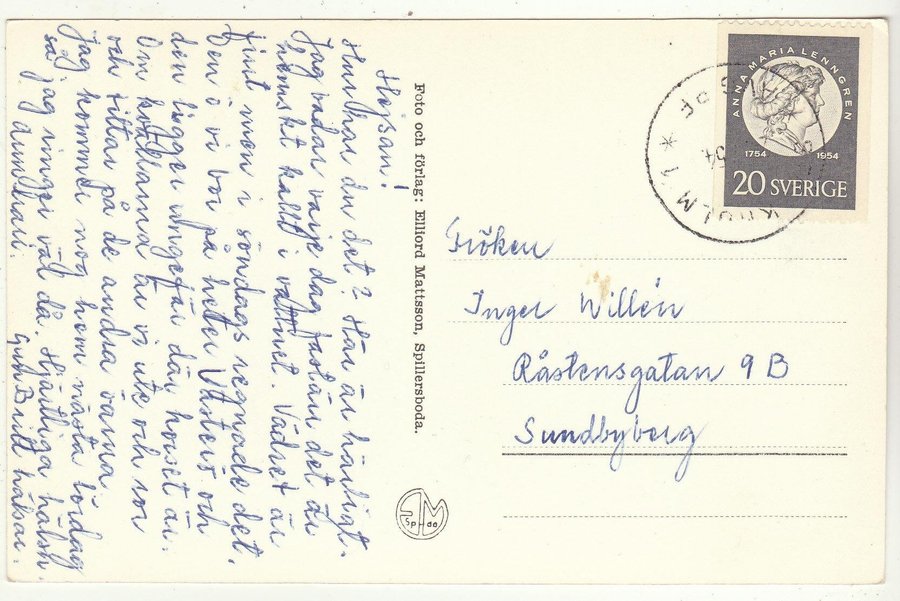 Hejsan!
Hur har du det? Här är härligt.
Jag badar varje dag fastän det är
hemskt kallt i vattnet. Vädret är
fint men i söndags regnade det.
Den ö vi bor på heter Västerö och
den ligger ungefär där huset är.
Om kvällarna är vi ute och ror
och tittar på de andra öarna
Jag kommer nog hem nästa lördag
så jag ringer väl då. Hjärtliga hälsn.
Gun Britt hälsar.
Foto och förlag: Elliord Mattsson, Spillersboda.
Sp-da
ANNA MARIA LENNGREN
1754 1954
20 SVERIGE
KHOLM 1
54
Fröken
Inger Willén
Råstensgatan 9 B
Sundbyberg